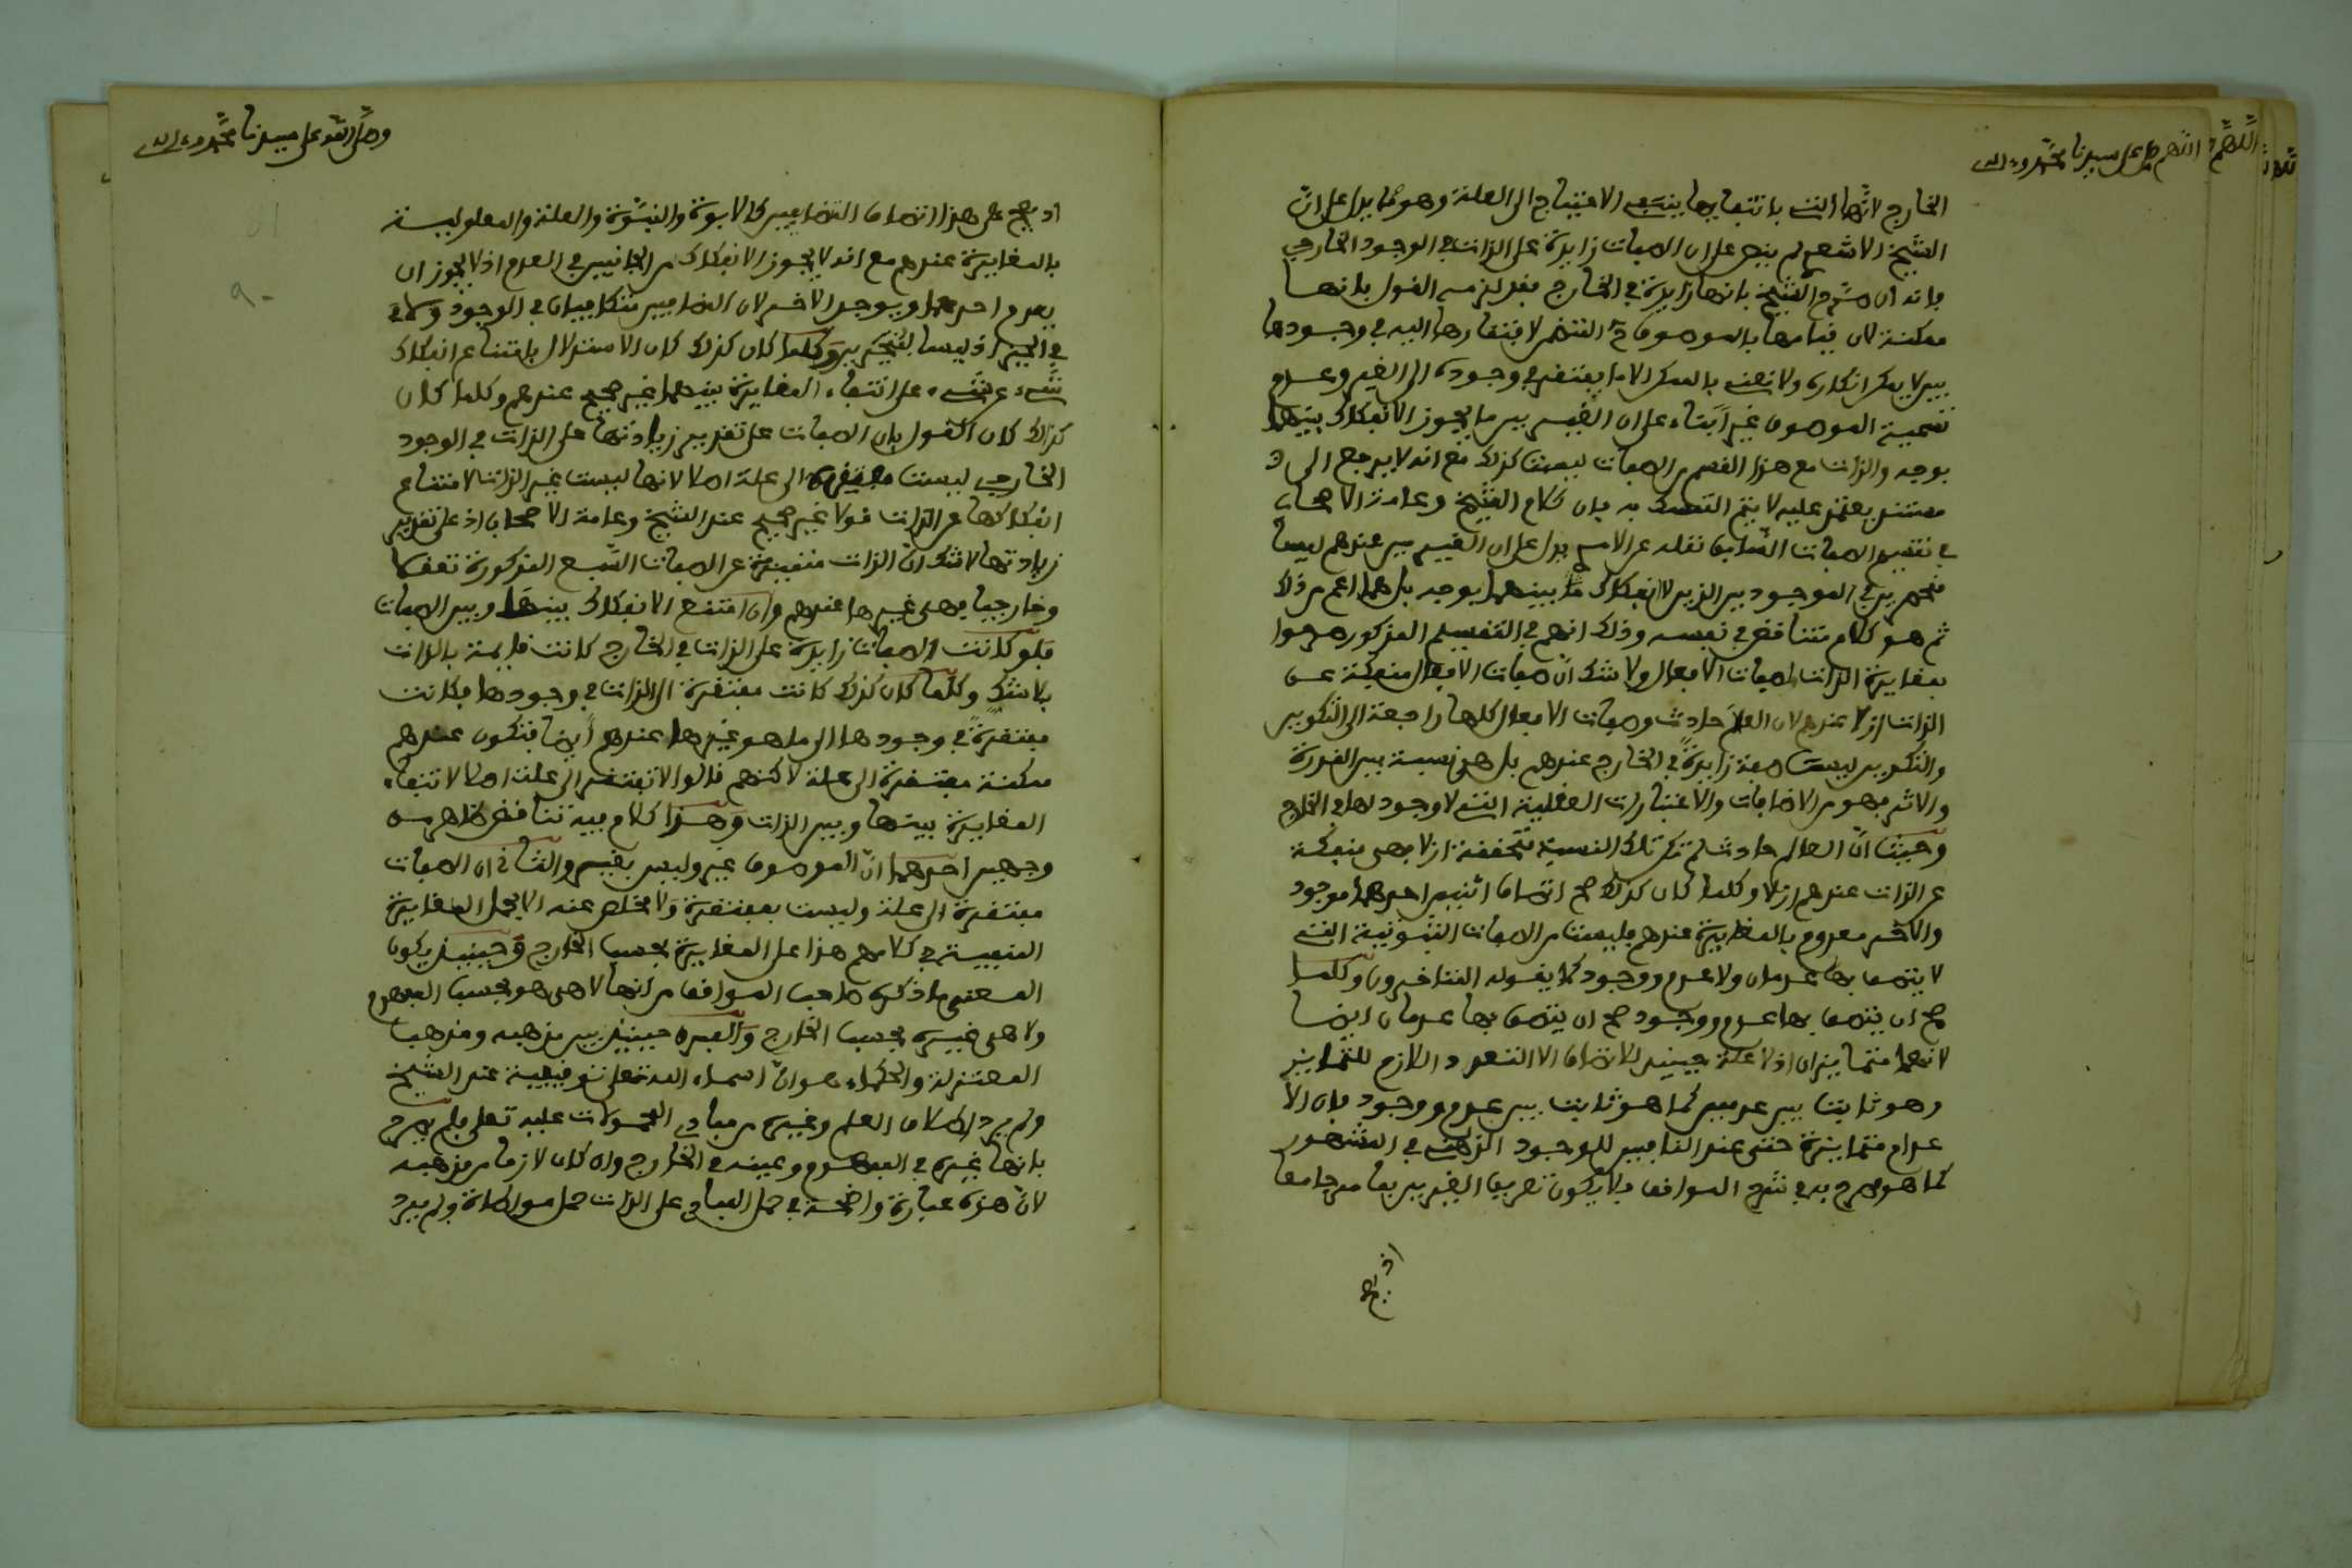 اللهم صل على سيدنا محمد وءاله
الخارج لانها التي بانتفايها ينتفي الاحتياج الى العلة وهو مما يدل على ان
الشيخ الاشعري لم ينص على ان الصفات زايدة على الذات في الوجود الخارجي
فانه ان صرح الشيخ بانها زايدة في الخارج فقد لزمه القول بانها
ممكنة لان قيامها بالموصوف المقتضي لافتقارها اليه في وجودها
بين لا يمكن انكاره ولا نعني بالممكن الا ما يفتقر في وجوده الى الغير وعدم
تسمية الموصوف غيرا بناء على ان الغيرين ما يجوز الانفكاك بينهما
بوجه والذات مع هذا القسم من الصفات ليست كذلك مع انه لا يرجع الى
مستند يعتمد عليه لا يتم التمسك به فان كلام الشيخ وعامة الاصحاب
في تقسيم الصفات السابق نقله عن الامدي يدل على ان الغيرين عندهم ليسا
منحصرين في الموجودين الذين لا انفكاك بينهما بوجه بل هما اعم من ذلك
ثم هو كلام متناقض في نفسه وذلك انهم في التقسيم المذكور صرحوا
بمغايرة الذات لصفات الافعال ولا شك ان صفات الافعال منفكة عن
الذات ازلا عندهم لان العالم حادث وصفات الافعال كلها راجعة الى التكوين
والتكوين ليست صفة زايدة في الخارج عندهم بل هي نسبة بين القدرة
والاثر فهو من الاضافات والاعتبارات العقلية التي لا وجود لها في الخارج
وحيث ان العالم حادث لم تكن تلك النسبة متحققة ازلا فهي منفكة
عن الذات عندهم ازلا وكلما كان كذلك صح اتصاف اثنين احدهما موجود
والاخر معدوم بالمغايرة عندهم فليست من الصفات الثبوتية التي
لا يتصف بها عدمان ولا عدم ووجود كما يقوله المتاخرون وكلما
صح ان يتصف بها عدم ووجود صح ان يتصف بها عدمان ايضا
لانهما متمايزان اذ لا علة حينيذ للاتصاف الا التعدد اللازم للتمايز
وهو ثابت بين عدمين كما هو ثابت بين عدم ووجود فان الا
عدام متمايزة حتى عند النافين للوجود الذهني في المشهور
كما هو مصرح به في شرح المواقف فلا يكون تعريف الغيرين بما مر جامعا
اذ يصح
وصلى الله على سيدنا محمد وءاله
اذ يصح على هذا اتصاف المتضايفين كالابوة والبنوة والعلة والمعلولية
بالمغايرة عندهم مع انه لا يجوز الانفكاك من الجانبين في العدم اذ لا يجوز ان
يعدم احدهما ويوجد الاخر لان المتضايفين متكافيان في الوجود ولا في
في الحيز اذ ليسا بمتحيزين وكلما كان كذلك كان الاستدلال بامتناع انفكاك
شيء عن شيء على انتفاء المغايرة بينهما غير صحيح عندهم وكلما كان
كذلك كان القول بان الصفات على تقدير زيادتها على الذات في الوجود
الخارجي ليست مفتقرة الى علة اصلا لانها ليست غير الذات لامتناع
انفكاكها عن الذات قولا غير صحيح عند الشيخ وعامة الاصحاب اذ على تقدير
زيادتها لا شك ان الذات متميزة عن الصفات السبع المذكورة تعقلا
وخارجيا فهي غيرها عندهم وان امتنع الانفكاك بينها وبين الصفات
فلو كانت الصفات زايدة على الذات في الخارج كانت قايمة بالذات
بلا شك وكلما كان كذلك كانت مفتقرة الى الذات في وجودها فكانت
مفتقرة في وجودها الى ما هو غيرها عندهم ايضا فتكون عندهم
ممكنة مفتقرة الى علة لاكنهم قالوا لا تفتقر الى علة اصلا لانتفاء
المغايرة بينها وبين الذات وهذا كلام فيه تناقض ظاهر من
وجهين احدهما ان الموصوف غير وليس بغير والثاني ان الصفات
مفتقرة الى علة وليست بمفتقرة ولا مخلص عنه الا بحمل المغايرة
المنفية في كلامهم هذا على المغايرة بحسب الخارج وحينيذ يكون
المعنى ما ذكره صاحب المواقف من انها لا هي هو بحسب المفهوم
ولا هي غيره بحسب الخارج والعبرة حينيذ بين مذهبه ومذهب
المعتزلة والحكماء هو ان اسماء الله تعلى توقيفية عند الشيخ
ولم يرد اطلاق العلم وغيره من مبادي المحمولات عليه تعلى فلم يصرح
بانها غيره في المفهوم وعينه في الخارج وان كان لازما من مذهبه
لان هذه عبارة واضحة في حمل المبادي على الذات حمل مواطاة ولم يرد